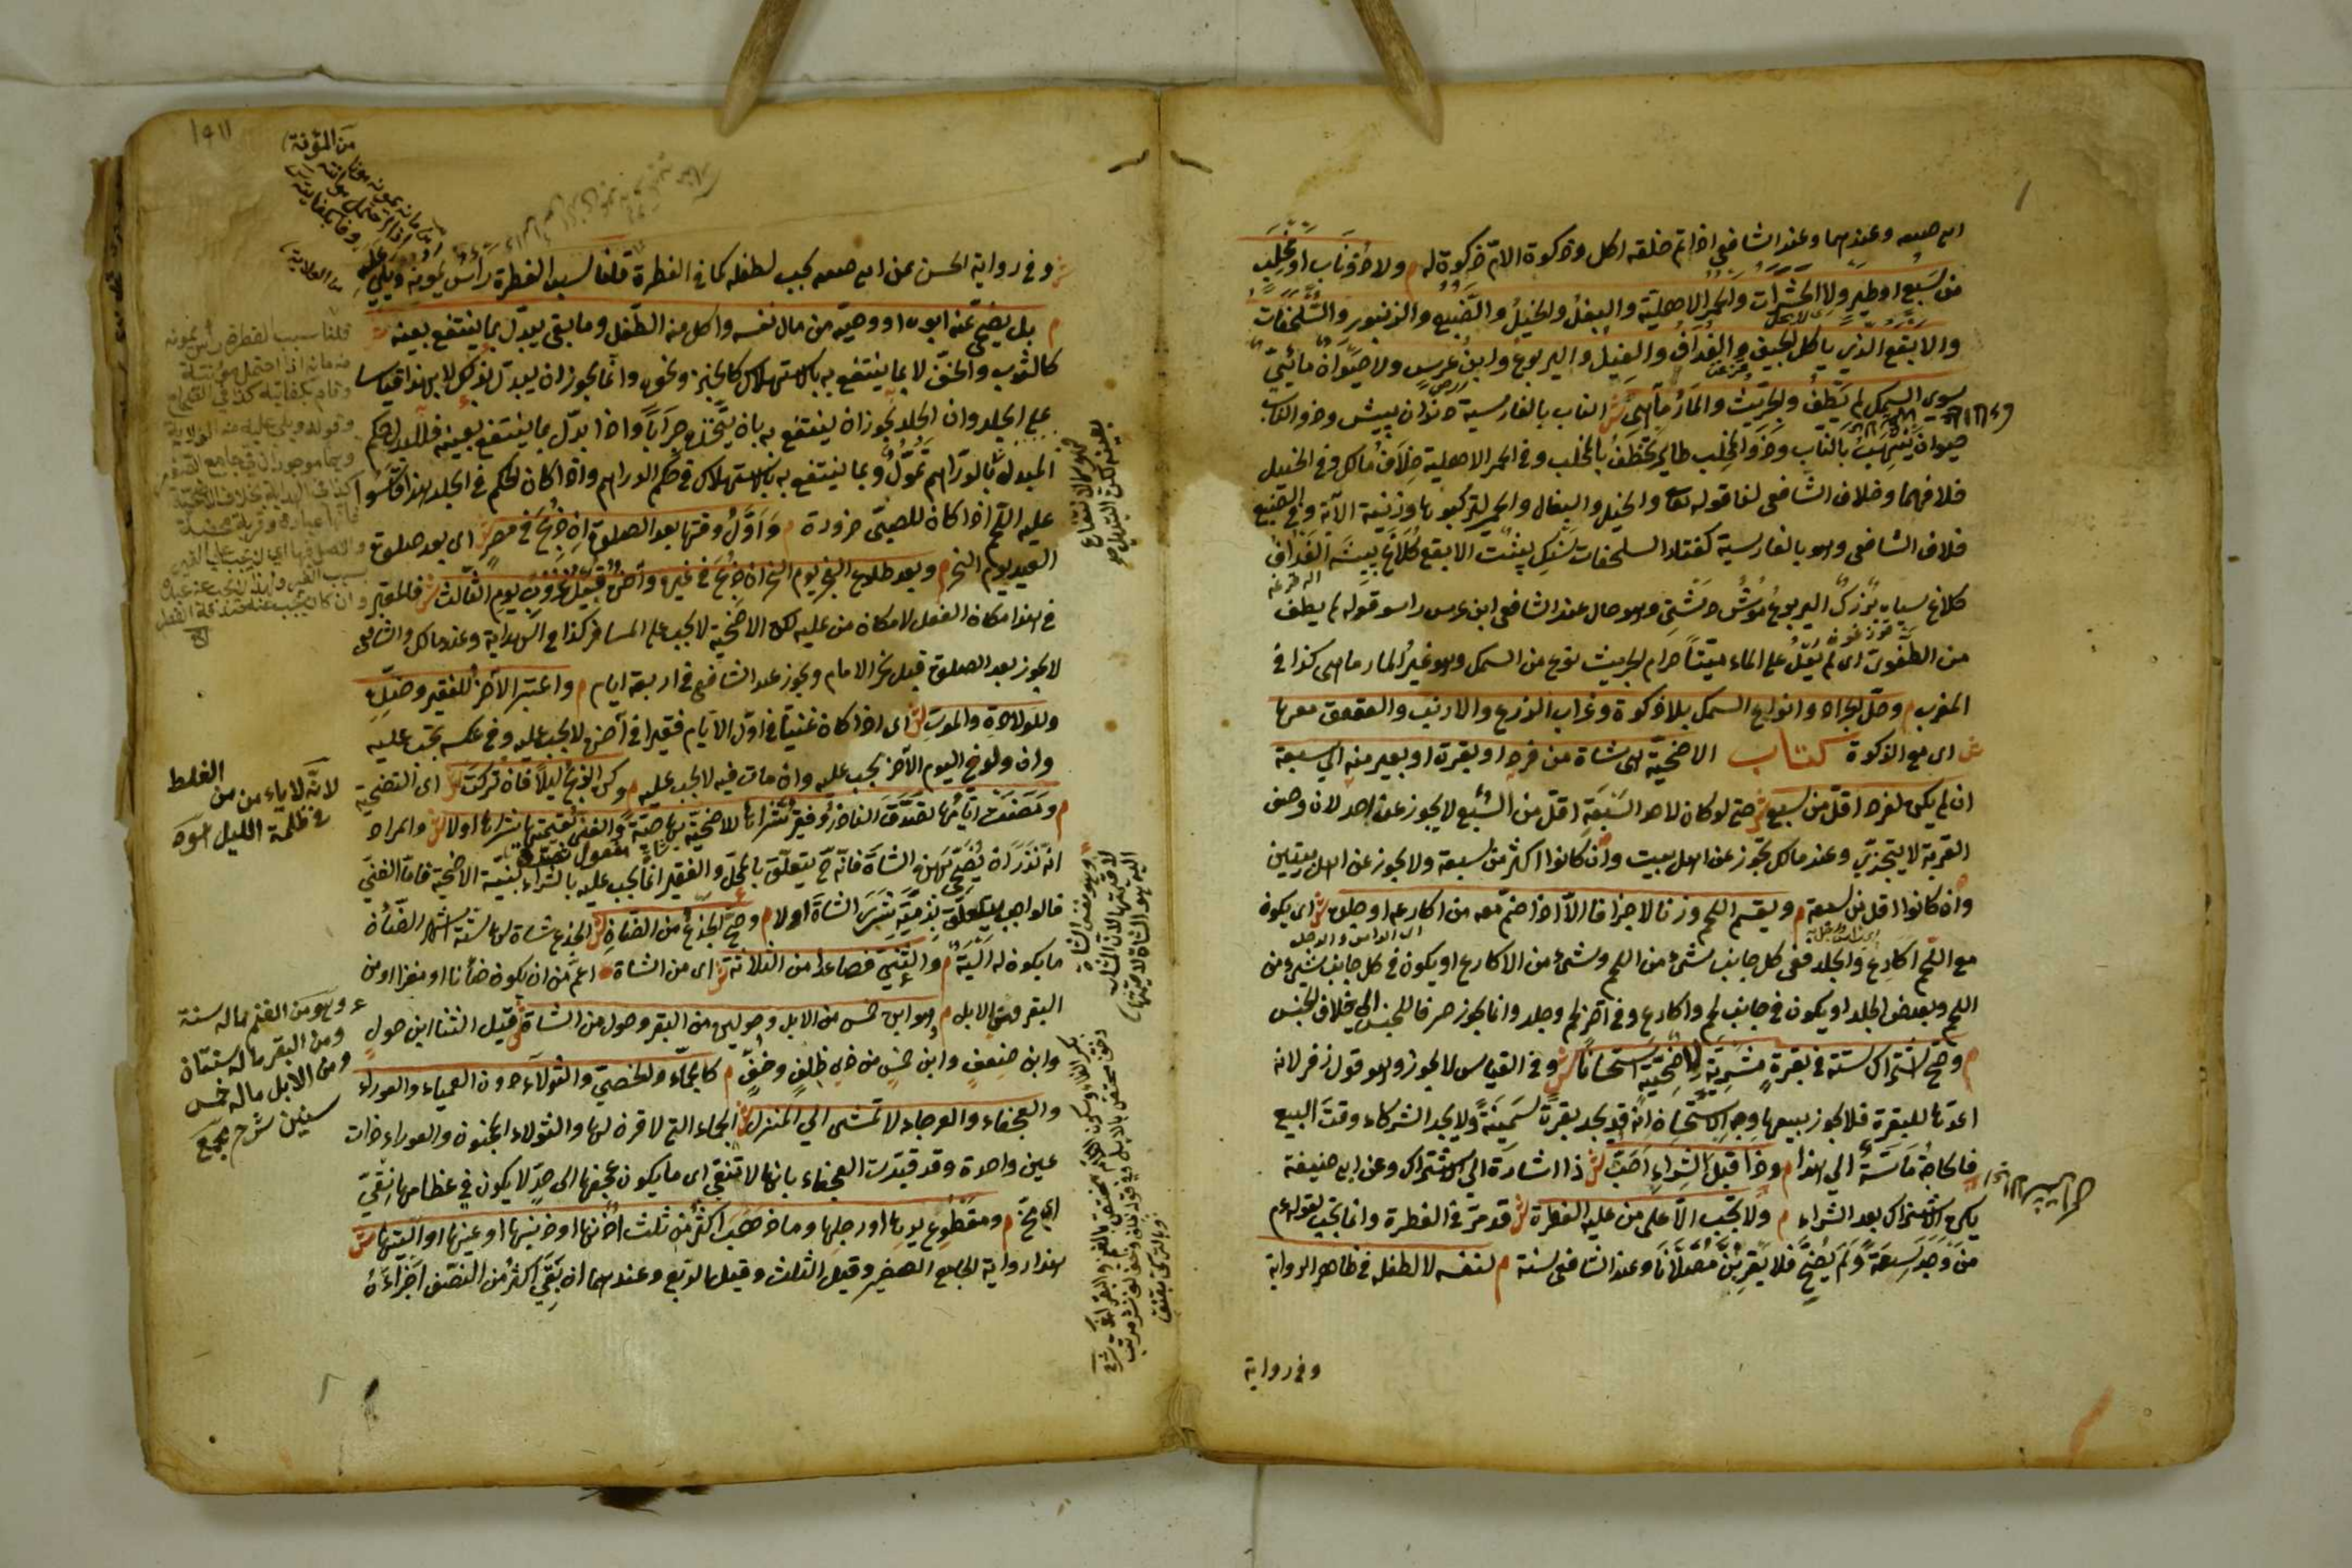 ابى حنيفه وعندهما وعند الشافعى اذا تم خلقه اكل وذكوة الام ذكوة له م ولا ذو ناب او مخلب
من سبع او طير ولا الحشرات والحمر الاهلية والبغل والخيل والضبع والزنبور والسلحفات
والابقع الذي ياكل الجيف والغداف والفيل واليربوع وابن عرس ولا حيوان مائى
سوى السمك لم يطف والجريث والمارماهى ش الناب بالفارسية دندان پيش وذو الناب
حيوان ينتهب بالناب وذو المخلب طاير يختطف بالمخلب وفى الحمر الاهلية خلاف مالك وفى الخيل
خلافهما وخلاف الشافعى لنا قوله تعالى والخيل والبغال والحمير لتركبوها وزينة الآية وفى الضبع
خلاف الشافعى وهو بالفارسية كفتار السلحفات سنك پشت الابقع كلاغ پيشه الغداف
كلاغ سياه بزرگ اليربوع موش دشتى وهو حلال عند الشافعى ابن عرس راسو قوله لم يطف
من الطفو اى لم يعل على الماء ميتا حرام الجريث نوع من السمك وهو غير المارماهى كذا فى
المغرب م وحل الجراد وانواع السمك بلا ذكوة وغراب الزرع والارنب والعقعق معها
ش اى مع الذكوة كتاب الاضحية هى شاة من فرد او بقرة او بعير منه الى سبعة
ان لم يكن لفرد اقل من سبع ش حتى لو كان لاحد السبعة اقل من السبع لا يجوز عن احد لان وصف
القربة لا يتجزى وعند مالك تجوز عن اهل بيت وان كانوا اكثر من سبعة ولا يجوز عن اهل بيتين
وان كانوا اقل من سبعة م ويقسم اللحم وزنا لا جزافا الا اذا ضم معه من اكارعه او جلده ش اى يكون
مع اللحم اكارع والجلد ففى كل جانب شئ من اللحم وشئ من الاكارع او يكون فى كل جانب شئ من
اللحم وبعض الجلد او يكون فى جانب لحم واكارع وفى آخر لحم وجلد وانما يجوز صرفا للجنس الى خلاف الجنس
م وصح اشتراك ستة فى بقرة مشرية لاضحية استحسانا ش وفى القياس لا يجوز وهو قول زفر لانه
اعدها للبقرة فلا يجوز بيعها وجه الاستحسان انه قد يجد بقرة سمينة ولا يجد الشركاء وقت البيع
فالحاجة ماسة الى هذا م وذا قبل الشراء احب ش ذا اشارة الى الاشتراك وعن ابى حنيفة
يكره الاشتراك بعد الشراء م ولا تجب الا على من عليه الفطرة ش قد مر فى الفطرة وانما تجب لقوله عم
من وجد سعة ولم يضح فلا يقربن مصلانا وعند الشافعى سنة م لنفسه لا لطفله فى ظاهر الرواية
وفى رواية
ش وفى رواية الحسن عن ابى حنيفه يجب لطفله كما فى الفطرة قلنا سبب الفطرة رأس يمونه ويلى عليه
م بل يضحى عنه ابوه او وصيه من مال نفسه واكل منه الطفل وما بقى يبدل بما ينتفع بعينه ش
كالثوب والخف لا بما ينتفع به بالاستهلاك كالخبز ونحوه وانما يجوز ان يبدل بذلك لا بهذا قياسا
على الجلد وان الجلد يجوز ان ينتفع به بان يتخذه جرابا واذا بدل بما ينتفع بعينه فللبدل حكم
المبدل بالدراهم تمول وبما ينتفع به بالاستهلاك فى حكم الدراهم واذا كان الحكم فى الجلد هذا قاسوا
عليه اللحم اذا كان للصبى ضرورة م واول وقتها بعد الصلوة ان ذبح فى مصر ش اى بعد صلوة
العيد يوم النحر م وبعد طلوع الفجر يوم النحر ان ذبح فى غيره وآخره قبيل غروب يوم الثالث ش فالمعتبر
فى هذا مكان الفعل لا مكان من عليه لكن الاضحية لا تجب على المسافر كذا فى الهداية وعند مالك والشافعى
لا يجوز بعد الصلوة قبل نحر الامام ويجوز عند الشافعى فى اربعة ايام م واعتبر الآخر للفقير وضده
وللولادة والموت ش اى اذا كان غنيا فى اول الايام فقيرا فى آخره لا تجب عليه وفى عكسه تجب عليه
وان ولد فى اليوم الآخر يجب عليه وان مات فيه لا يجب عليه م وكره الذبح ليلا فان تركت ش اى التضحية
م ومضت ايامها تصدق الناذر وفقير شراها للاضحية بها حية والغنى بقيمتها شراها او لا ش والمراد
انه نذر ان يضحى بهذه الشاة فانه ح يتعلق بالمحل والفقير انما يجب عليه بالشراء بنية الاضحية فاما الغنى
فالواجب يتعلق بذمته شرى الشاة او لا م وصح الجذع من الضأن ش الجذع شاة لها ستة اشهر الضأن
ما يكون له الية م والثنى فصاعدا من الثلاثة ش اى من الشاة اعم من ان يكون ضأنا او معزا او من
البقر ومن الابل م وهو ابن خمس من الابل وحولين من البقر وحول من الشاة ش قيل الثنى ابن حول
وابن ضعف وابن خمس من ذوى ظلف وخف م كالجماء والخصى والثولاء دون العمياء والعوراء
والعجفاء والعرجاء لا تمشى الى المنسك ش الجماء التى لا قرن لها والثولاء المجنون والعوراء ذات
عين واحدة وقد قيدت العجفاء بانها لا تنقى اى ما يكون عجفها الى حد لا يكون فى عظامها نقى
اى مخ م ومقطوع يدها او رجلها وما ذهب اكثر من ثلث اذنها او ذنبها او عينها او اليتها ش
هذا رواية الجامع الصغير وقيل الثلث وقيل الربع وعندهما ان بقى اكثر من النصف اجزأه
من المؤنة
قلنا سبب الفطرة رأس يمونه
وقام بكفايته
لانه لا يامن من الغلط
فى ظلمة الليل
وهو من الغنم ماله سنة
ومن البقر ماله سنتان
ومن الابل ماله خمس
سنين شرح مجمع